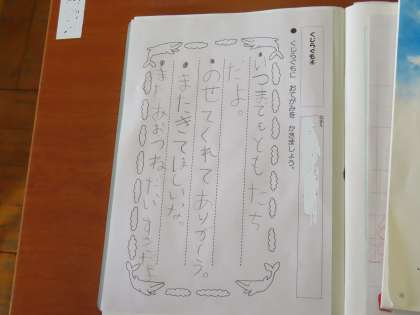 くじらぐも④
● くじらぐもに おてがみを かきましょう。
いつまでもともだち
だよ。
のせてくれてありがとう。
またきてほしいな。
またあおうね